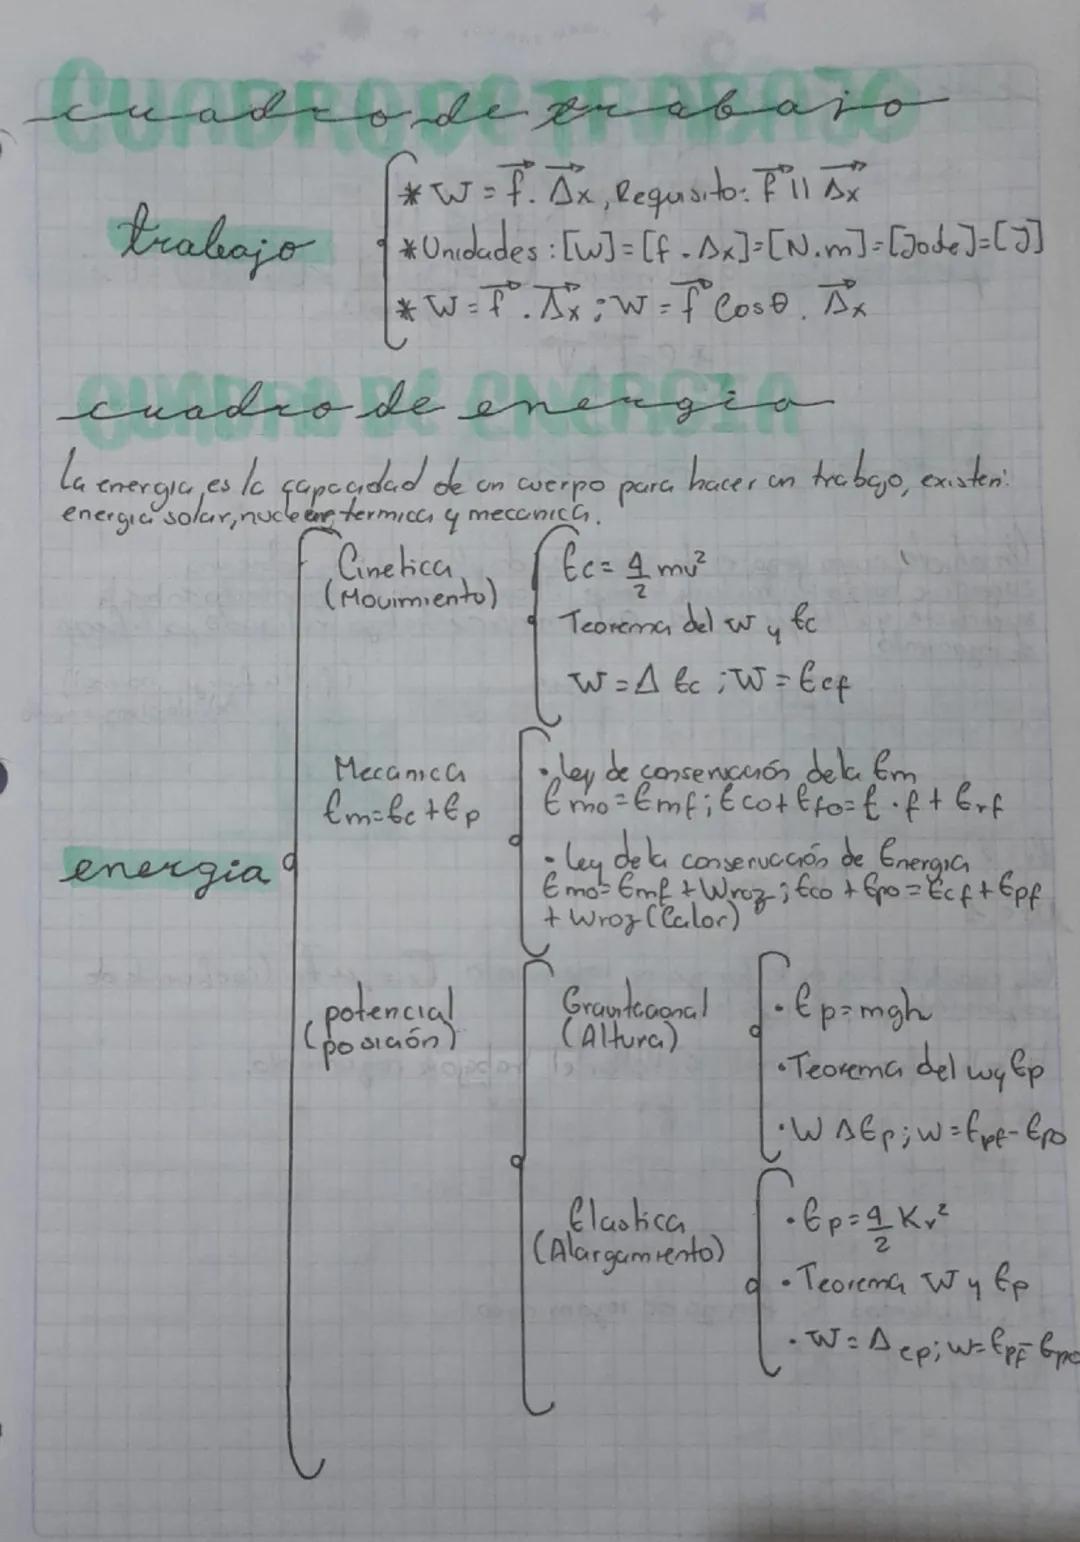 cuadro de trabajo
trabajo
* W = f⃗ . Δ⃗x , Requisito: f⃗ || Δ⃗x
* Unidades : [W] = [f . Δx] = [N.m] = [Jode] = [J]
* W = f⃗ . Δ⃗x ; W = f⃗ Cosθ . Δ⃗x
cuadro de energia
La energia, es la capacidad de un cuerpo para hacer un trabajo, existen:
energia solar, nuclear, termica y mecanica.
energia
Cinetica
(Movimiento)
Ec = 1/2 mv²
Teorema del W y Ec
W = Δ Ec ; W = Ecf
Mecanica
Em = Ec + Ep
· ley de conservación de la Em
Emo = Emf ; Eco + Efo = E · f + Erf
· Ley de la conservación de Energia
Emo = Emf + Wroz ; Eco + Epo = Ecf + Epf
+ Wroz (Calor)
potencial
(posición)
Gravitacional
(Altura)
· Ep = mgh
· Teorema del w y Ep
· W ΔEp ; w = Epf - Epo
Elastica
(Alargamiento)
· Ep = 1/2 Kv²
· Teorema W y Ep
· W = Δ ep ; w = Epf - Epo